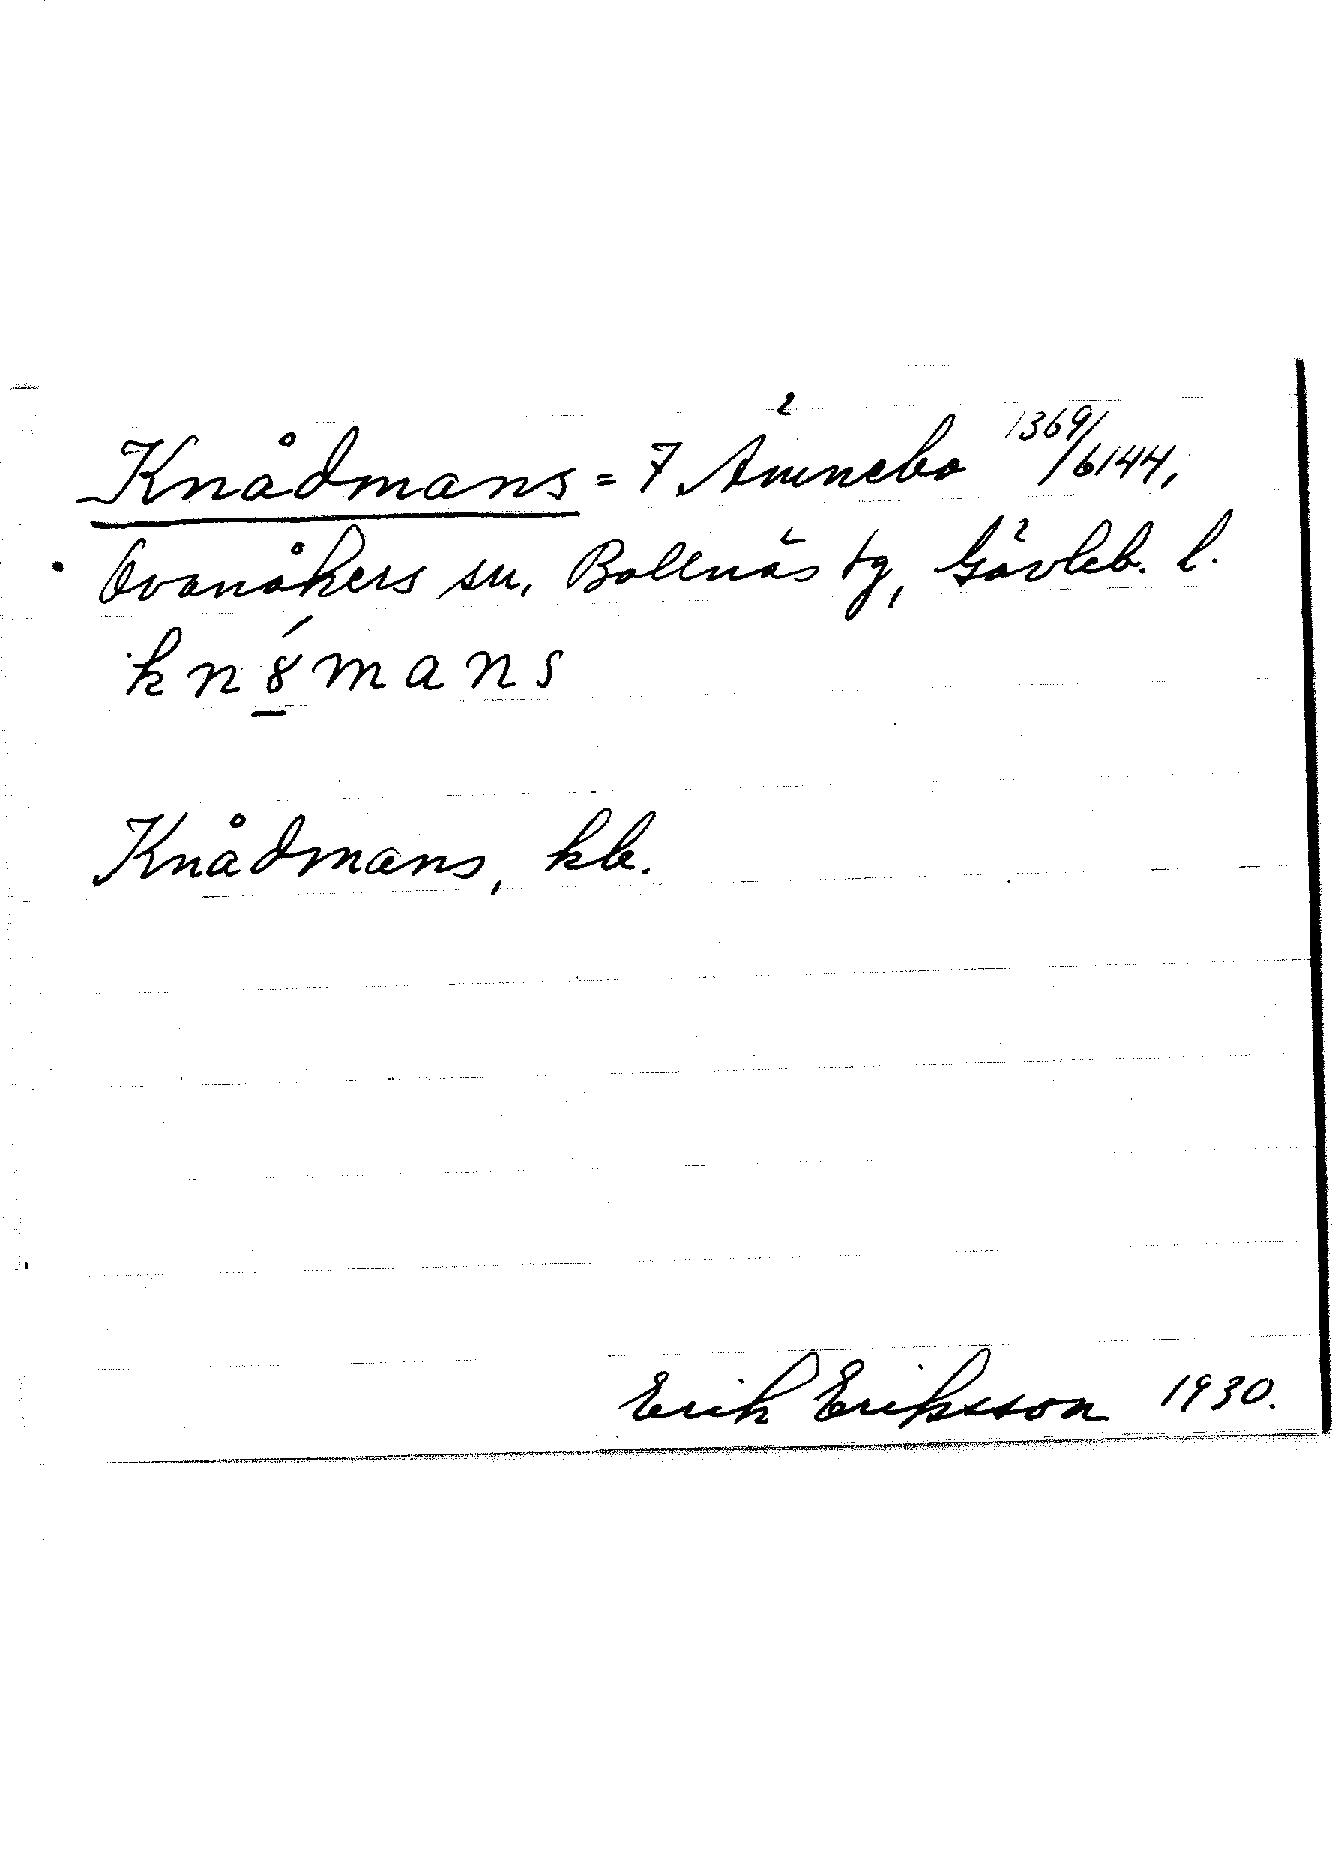 Knådmans = 7 Ämnebo 1369/6144,
Ovanåkers sn, Bollnäs tg, Gävleb. l.
kn8́mans
Knådmans, kb.
Erik Eriksson 1930.